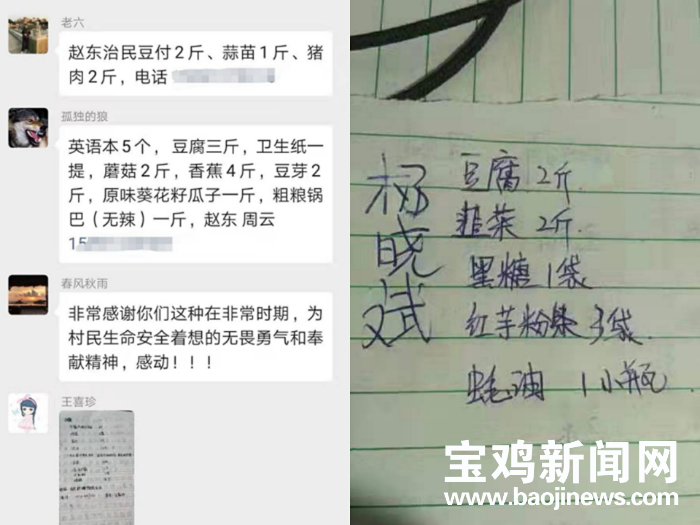 老六
赵东治民豆付2斤、蒜苗1斤、猪
肉2斤，电话
孤独的狼
英语本5个，豆腐三斤，卫生纸一
提，蘑菇2斤，香蕉4斤，豆芽2
斤，原味葵花籽瓜子一斤，粗粮锅
巴（无辣）一斤，赵东 周云
15
春风秋雨
非常感谢你们这种在非常时期，为
村民生命安全着想的无畏勇气和奉
献精神，感动！！！
王喜珍
杨晓斌
豆腐 2斤.
韭菜 2斤.
黑糖 1袋
红芋粉条 3袋
蚝油 1小瓶
宝鸡新闻网
www.baojinews.com